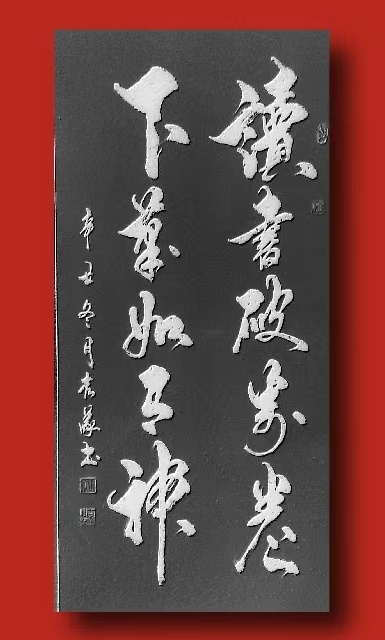 讀書破萬卷
下筆如有神
辛丑冬月袁書